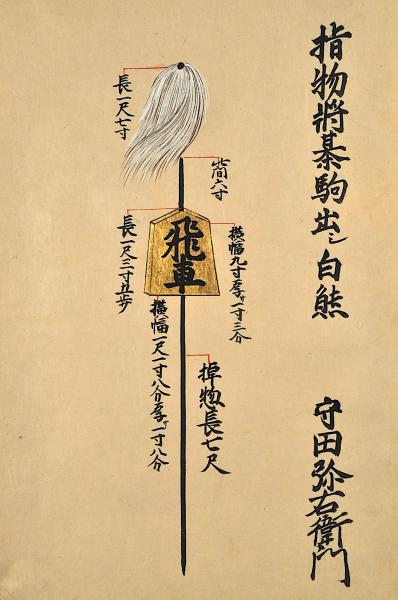 指物将棊駒出シ白熊
守田弥右衛門
此間六寸
横幅九寸厚サ一寸三分
棹惣長七尺
飛車
長一尺七寸
長一尺三寸五歩
横幅一尺一寸八分厚サ一寸八分